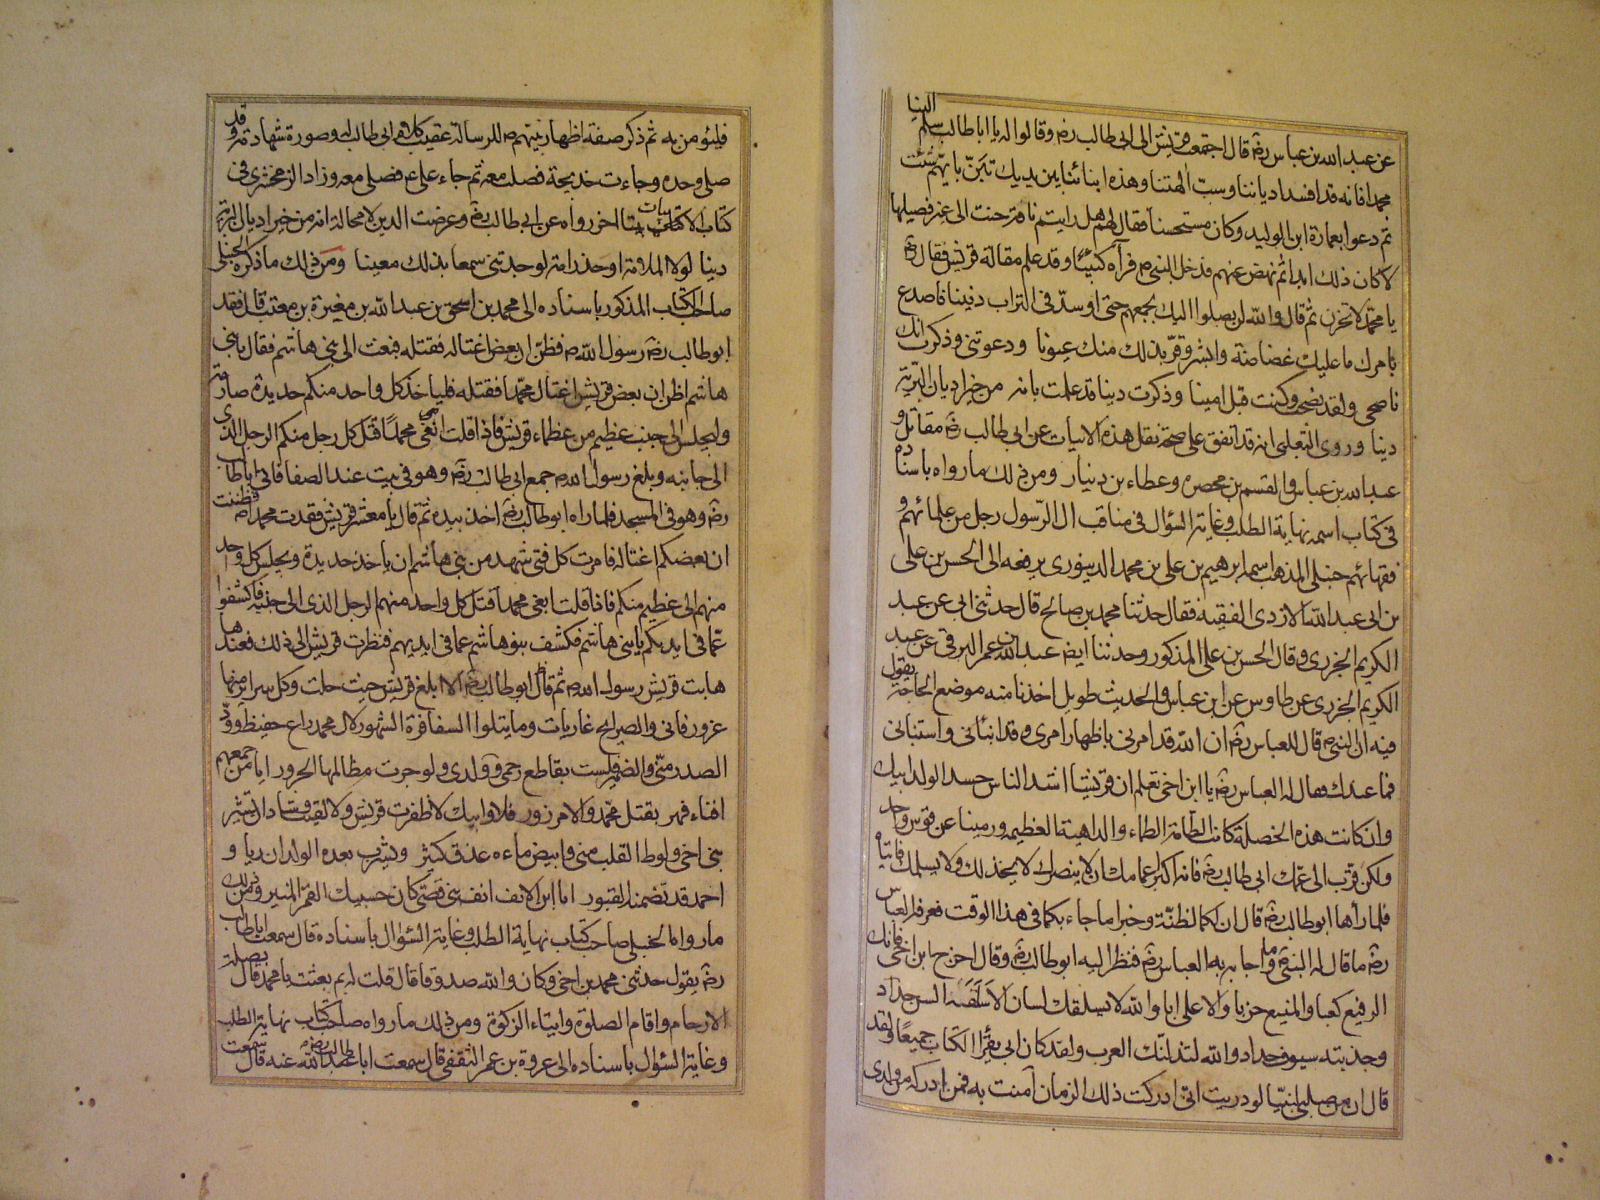 عن عبد الله بن عباس رضه قال اجتمعت قريش الى ابى طالب رضه وقالوا له يا ابا طالب سلم الينا
محمدا فانه قد افسد دياننا وسب الهتنا وهذه ابنائنا بين يديك تبنّ بايّهم شئت
ثم دعوا بعمارة ابن الوليد وكان مستحسنا فقال لهم هل رايتم ناقة حنت الى غير فصيلها
لا كان ذلك ابدا ثم نهض عنهم فدخل النبى ص فرآه كئيبًا وقد علم مقالة قريش فقال رضه
يا محمد لا تحزن ثم قال والله لن يصلوا اليك بجمعهم حتى اوسّد فى التراب دفينا فاصدع
بامرك ما عليك غضاضة وابشر وقرّ بذلك منك عيونا ودعوتنى وذكرت انك
ناصحى ولقد نصحت وكنت قبل امينا وذكرت دينا قد علمت بانه من خير اديان البريّة
دينا وروى الثعلبى انه قد اتفق على صحة نقل هذه الابيات عن ابى طالب رضه مقاتل و
عبد الله بن عباس والقسم بن محصره وعطاء بن دينار ومن ذلك ما رواه باسناده
فى كتاب اسمه نهاية الطلب وغاية السؤال فى مناقب ال الرّسول رجل من علمائهم و
فقهائهم حنبلى المذهب اسمه ابرهيم بن على بن محمد الدينورى يرفعه الى الحسن بن على
بن ابى عبد الله الازدى الفقيه فقال حدثنا محمد بن صالح قال حدثنى ابى عن عبد
الكريم الجزرى وقال الحسن بن على المذكور وحدثنا ايضا عبد الله بن عمر البرقى عن عبد
الكريم الجزرى عن طاوس عن ابن عباس والحديث طويل اخذنا منه موضع الحاجة يقول
فيه ان النبى ص قال للعباس رضه ان الله قد امرنى باظهار امرى وقد انبئانى واستنبانى
فما عندك فقال له العباس رضه يا ابن اخى تعلم ان قريشا اشد الناس حسد الولد ابيك
وان كانت هذه الخصلة كانت الطامة الطماء والداهية العظيمه ورمينا عن قوس واحد
ولكن قرّب الى عمك ابى طالب رضه فانه اكبر اعمامك ان لا ينصرك لا يخذلك ولا يسلمك فاتياه
فلما رأها ابو طالب رضه قال ان لكما لظنّة وخبرا ما جاء بكما فى هذا الوقت فعرفه العباس
رضه ما قال له النبى ص وما اجابه به العباس رضه فنظر اليه ابو طالب رضه وقال اخرج ابن اخى فانك
الرفيع كعبا والمنيع حزبا والاعلى ابا والله لا يسلقك لسان الا سلقته السن حداد
وجذبته سيوف حداد والله لتذلنّك العرب ولقد كان ابى يقرأ الكتاب جميعًا ولقد
قال ان من صلبى لنبيّا لوددت انى ادركت ذلك الزمان آمنت به فمن ادركه من ولدى
فليؤمن به ثم ذكر صفة اظهار نبيهم ص للرسالة عقيب كلام ابى طالب له وصورة شهادته وقد
صلى وحده وجاءت خديجة فصلت معه ثم جاء على ع فصلى معه وزاد الزمخشرى فى
كتاب الاكتاب بيتا اخر رواه عن ابى طالب رضه وعرضت الدين لا محالة انه من خير اديان البريّة
دينا لولا الملامة او حذارته لوجدتنى سمحا بذلك معينا ومن ذلك ما ذكره الحنبلى
صاحب الكتاب المذكور باسناده الى محمد بن اسحق بن عبد الله بن مغيرة بن معقب قال فقد
ابو طالب رضه رسول الله ص فظن ان بعض اغتاله فقتله فبعث الى بنى هاشم فقال يا بنى
هاشم اظن ان بعض قريش اغتال محمدا فقتله فلياخذ كل واحد منكم حديدة صارمة
وليجلس الى جنب عظيم من عظماء قريش فاذا قلت ابغى محمدًا قتل كل رجل منكم الرجل الذى
الى جانبه وبلغ رسول الله ص جمع ابى طالب رضه وهو فى بيت عند الصفا فاتى ابا طالب
رضه وهو فى المسجد فلما راه ابو طالب رضه اخذ بيده ثم قال يا معشر قريش فقدت محمدا ص فظننت
ان بعضكم اغتاله فامرت كل فتى شهد من بنى هاشم ان ياخذ حديدة ويجلس كل واحد
منهم الى عظيم منكم فاذا قلت ابغى محمدا قتل كل واحد منهم الرجل الذى الى جنبه فاكشفوا
عمّا فى ايديكم يا بنى هاشم فكشف بنو هاشم عما فى ايديهم فنظرت قريش الى ذلك فعندها
هابت قريش رسول الله ص ثم قال ابو طالب رضه الا ابلغ قريش حيث حلت وكل سراير منها
غرور فانى والضوابح غاديات وما يتلوا السفافرة الشهور لال محمد راع حفيظ وودّ
الصدر منّى والضمير فلست بقاطع رحمى وولدى ولو جرت مظالمها الجزور ايامر جمعهم
افناء فهر بقتل محمّد والامر زور فلا وابيك لا ظفرت قريش ولا لقيت رشادا اذ تشير
بنى اخى ولوط القلب منى وابيض ماءه غدق كثير ويشرب بعده الولدان ريا و
احمد قد تضمنه القبور اما ابن الانف انف بنى قصى كان جبينك القمر المنير ومن ذلك
ما رواه الحنبلى صاحب كتاب نهاية الطلب وغاية السؤال باسناده قال سمعت ابا طالب
رضه يقول حدثنى محمد بن اخى وكان والله صدوقا قال قلت له بم بعثت يا محمد قال بصلة
الارحام واقام الصلوة وايتاء الزكوة ومن ذلك ما رواه صاحب كتاب نهاية الطلب
وغاية السؤال باسناده الى عروة بن عمر الثقفى قال سمعت ابا طالب رضى الله عنه قال سمعت